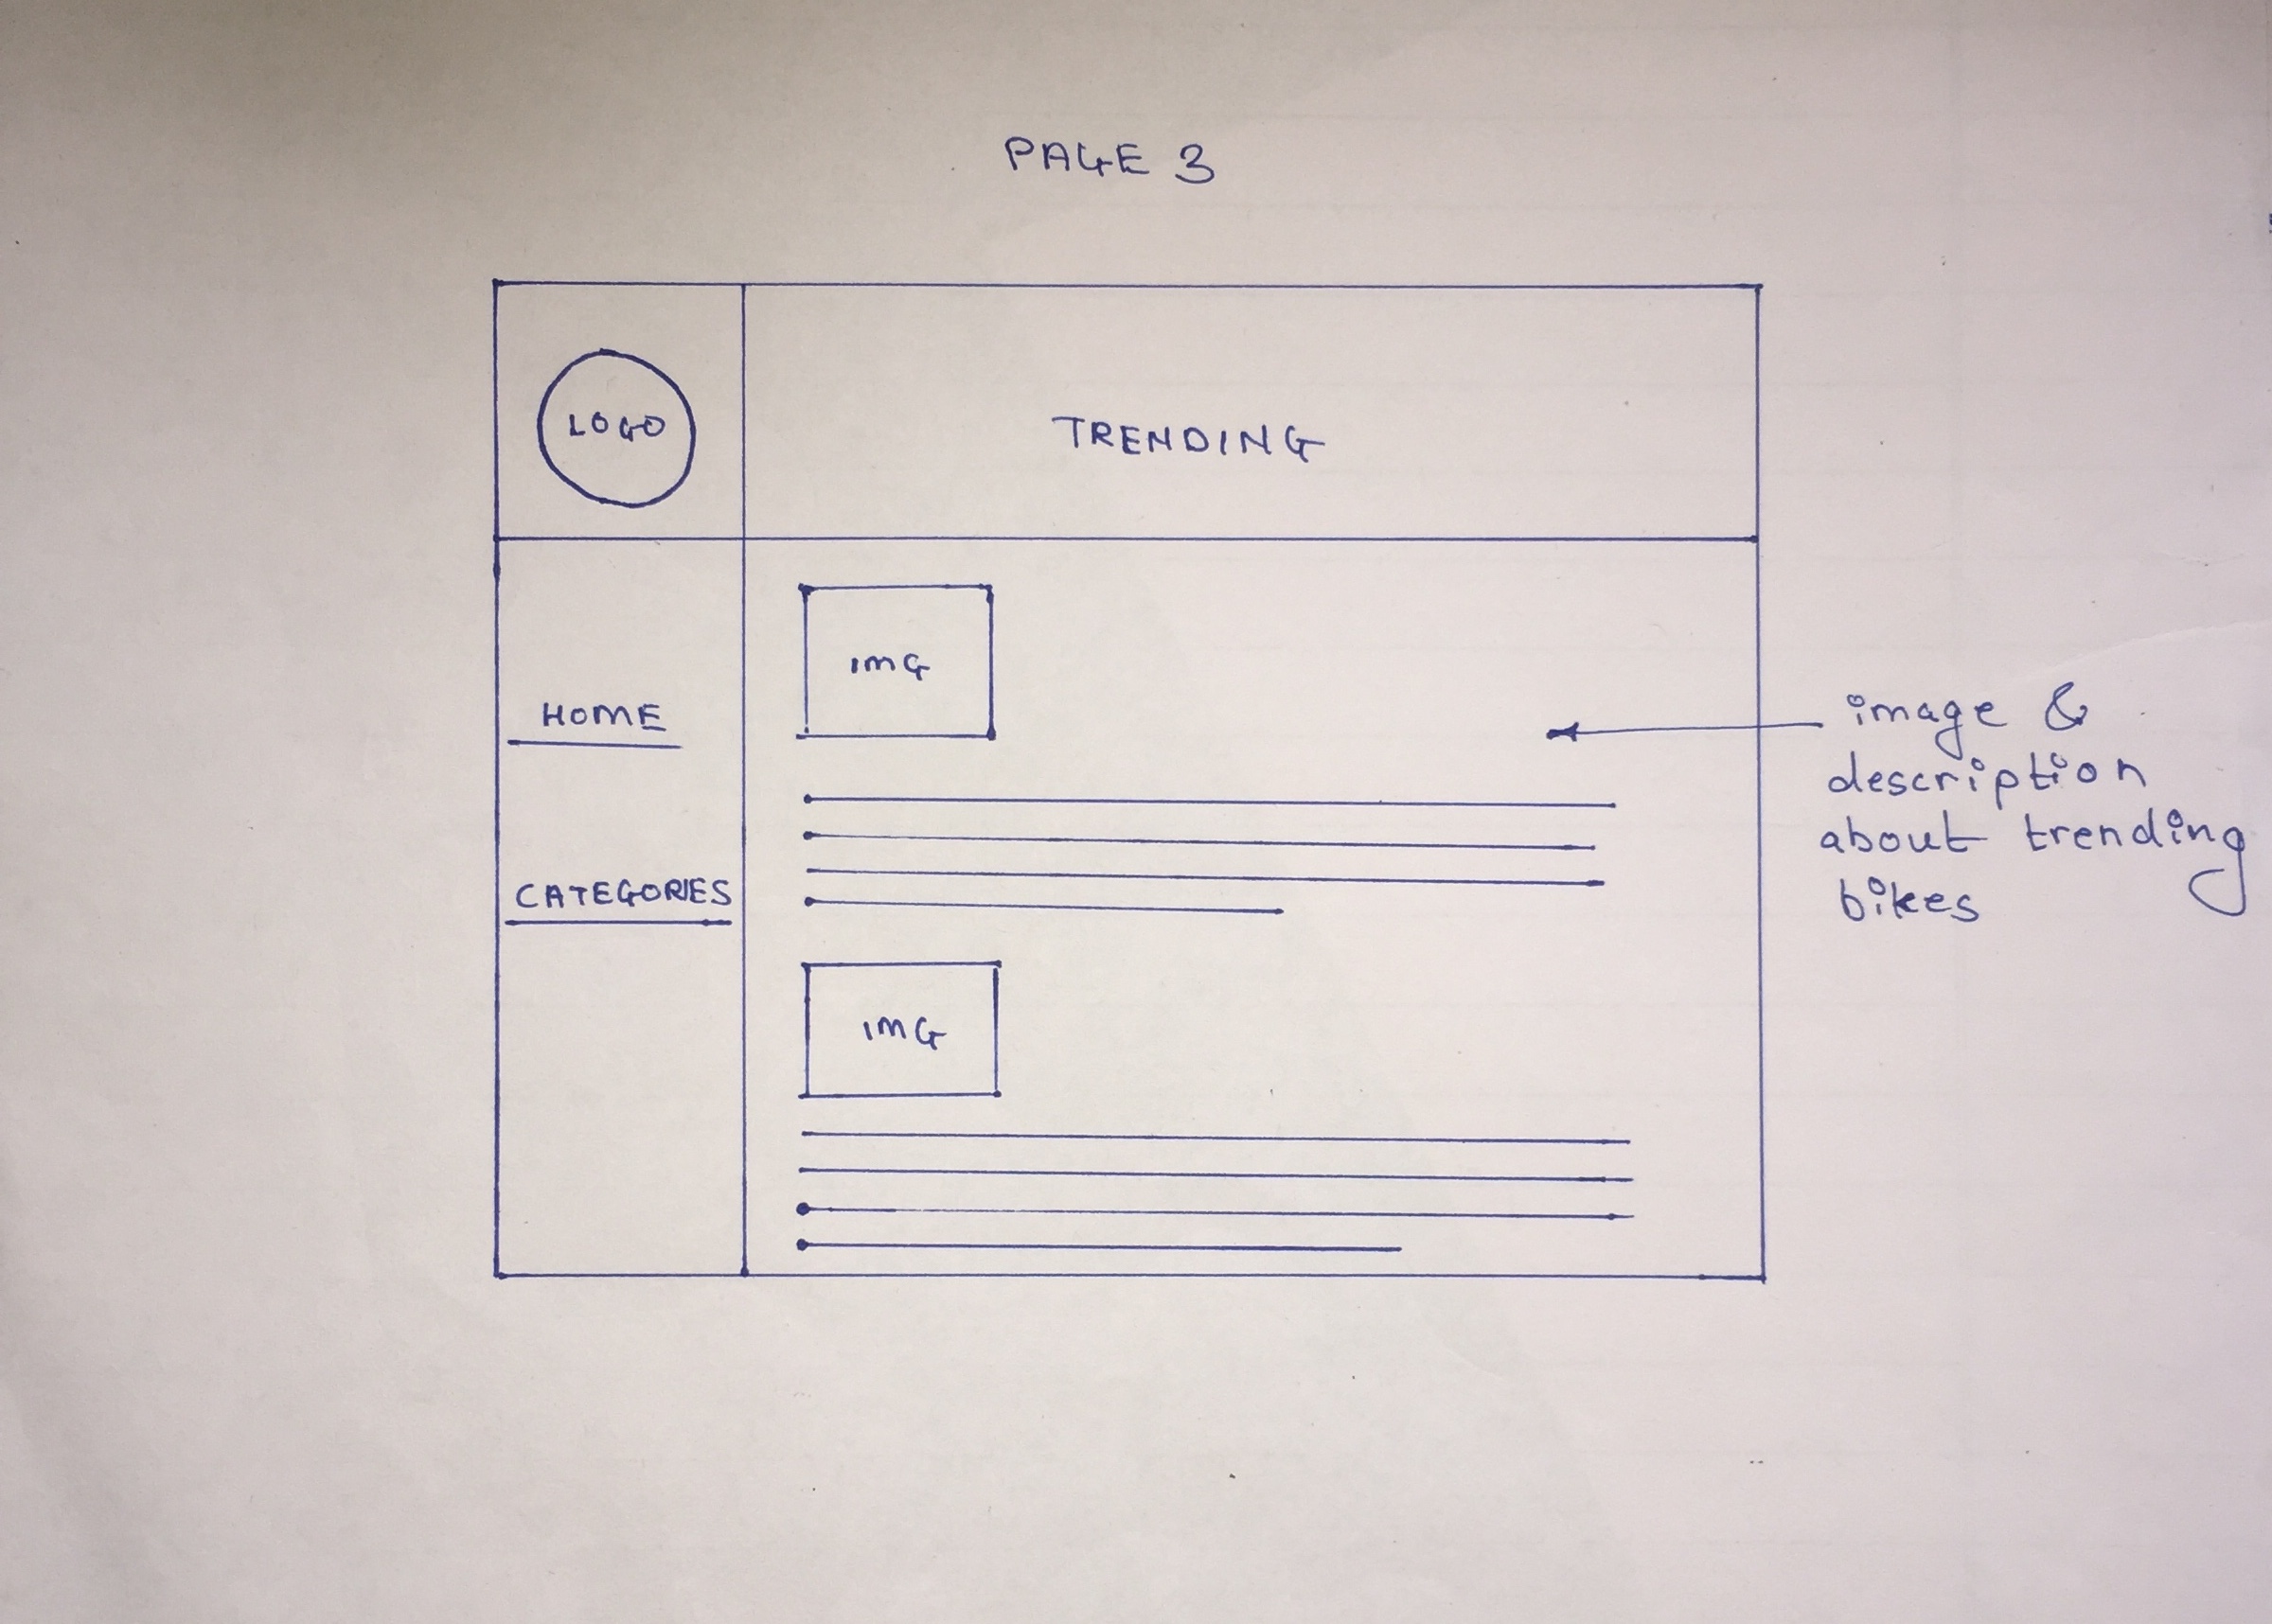 PAGE 3
LOGO
TRENDING
IMG
HOME
CATEGORIES
IMG
image &
description
about trending
bikes